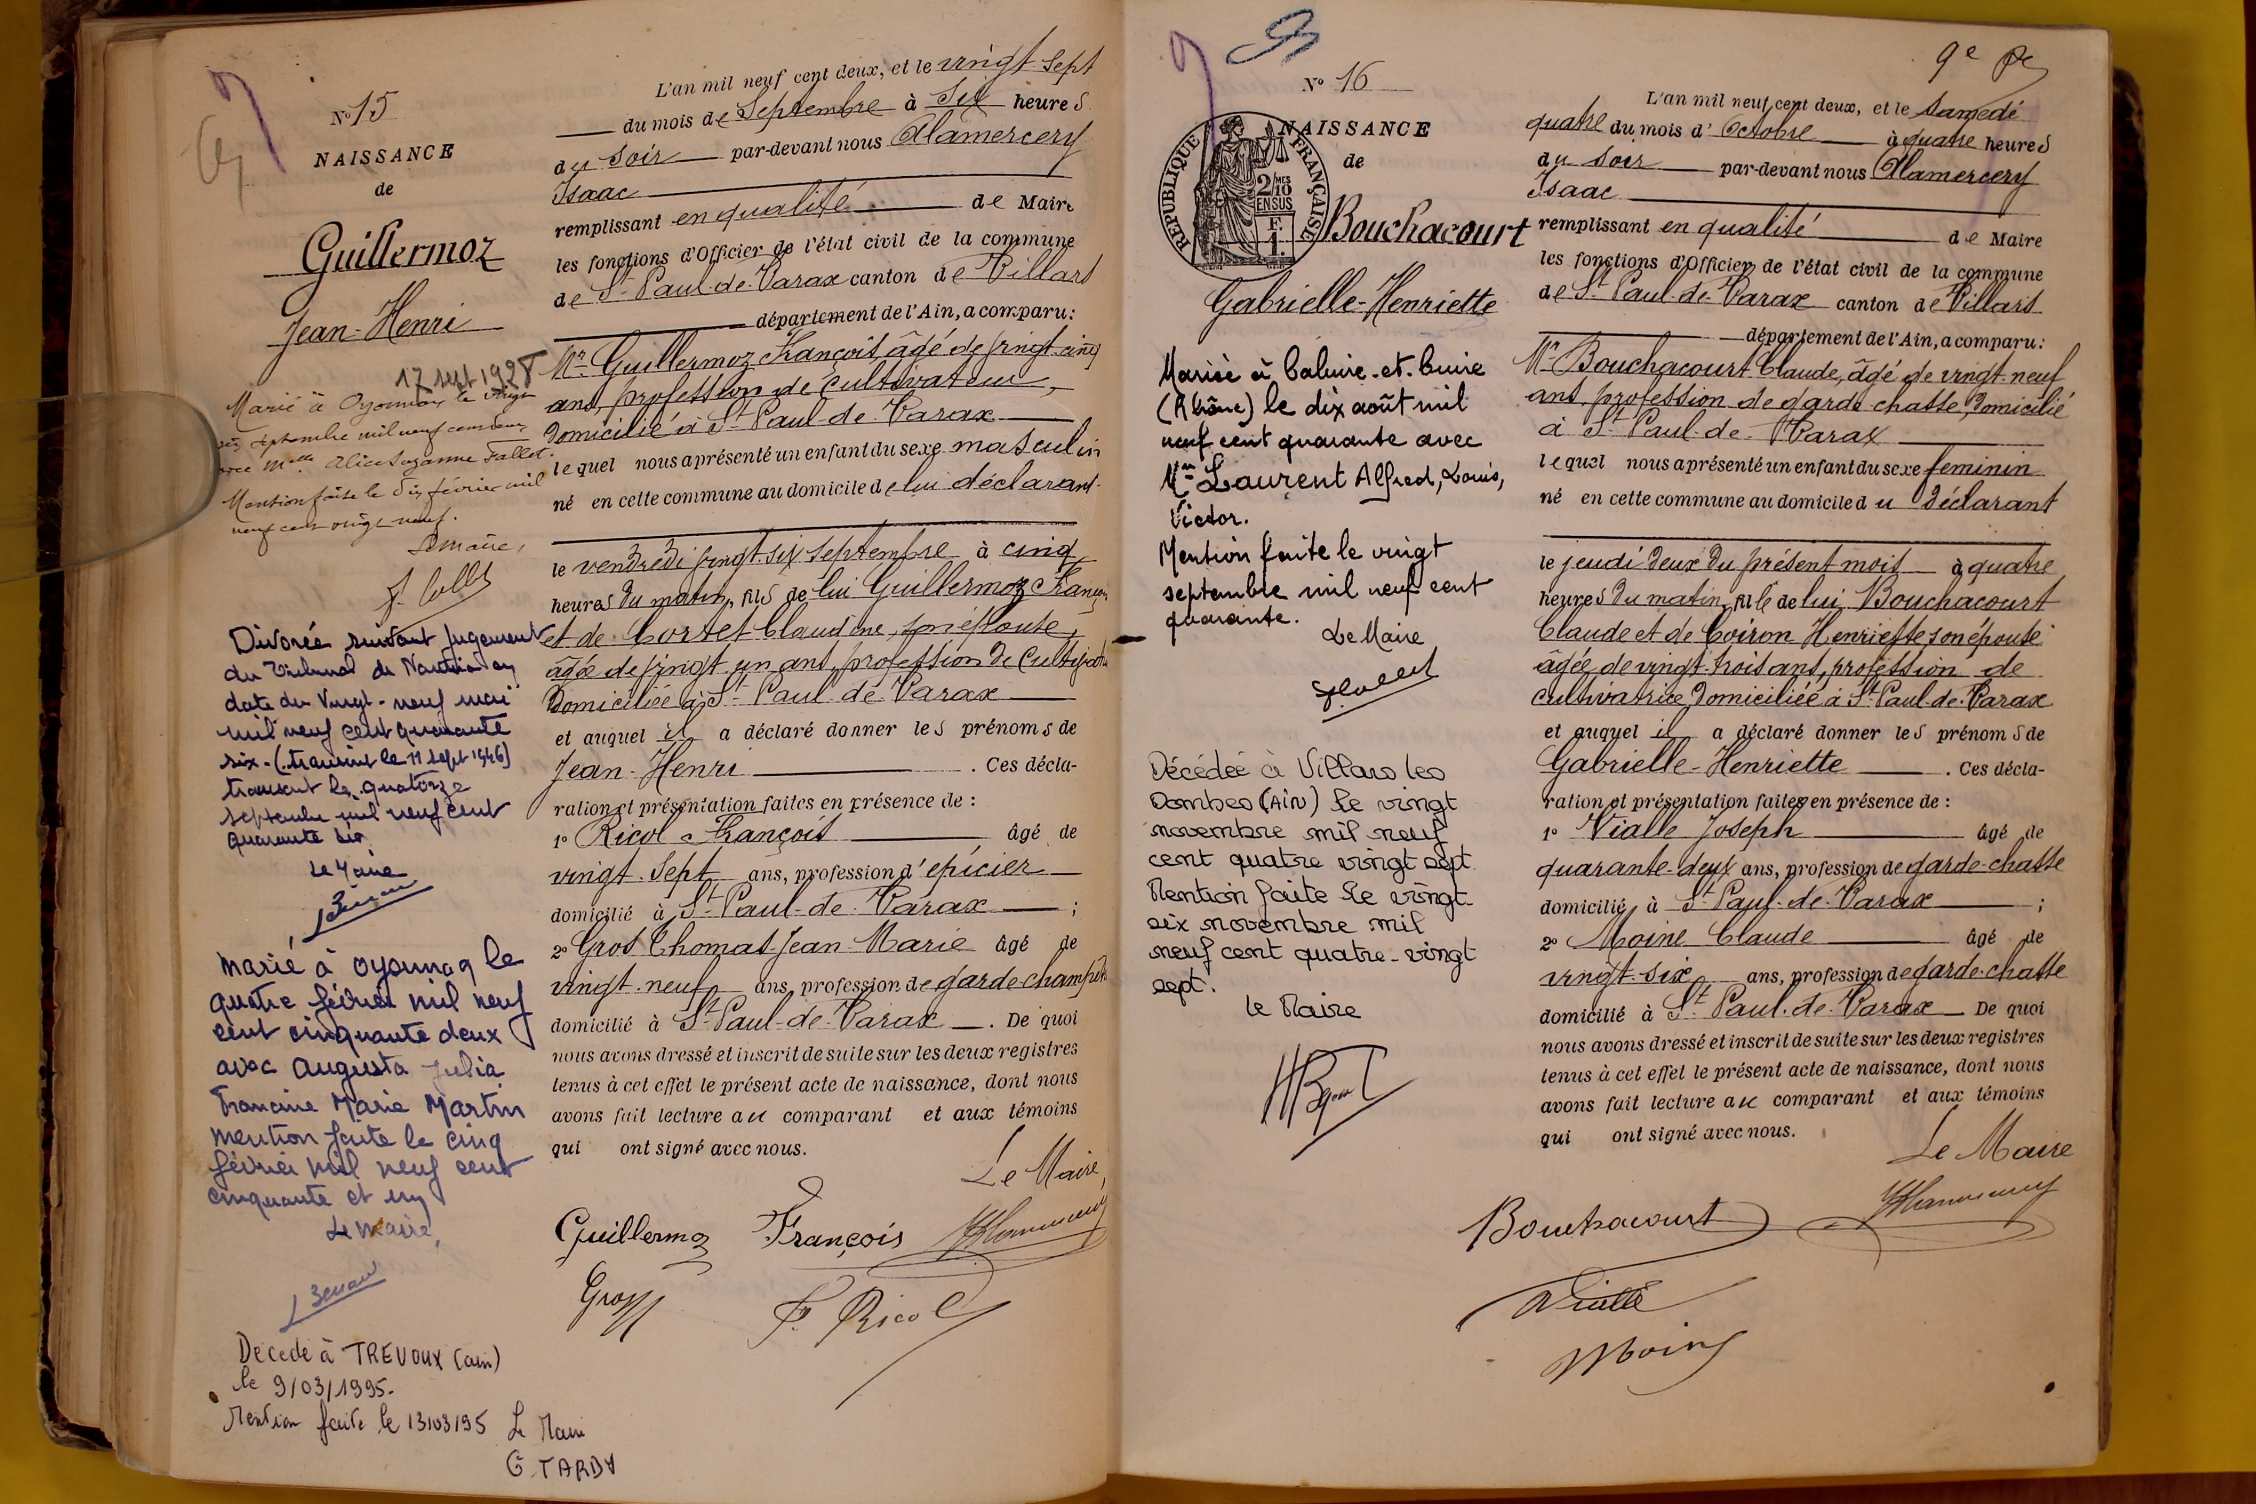 N° 15
NAISSANCE
de
Guillermoz
Jean-Henri
17 sept 1928
Marié à Oyonnax le vingt
septembre mil neuf cent
avec Melle Alice Suzanne Fallet.
Mention faite le dix février mil
neuf cent vingt neuf.
Le Maire,
Divorcé suivant jugement
du Tribunal de Nantua en
date du Vingt-neuf mai
mil neuf cent quarante
six - (transcrit le 11 sept 1946)
transcrit le quatorze
septembre mil neuf cent
quarante six
Le Maire
Marié à Oyonnax le
quatre février mil neuf
cent cinquante deux
avec Augusta Julia
Francine Marie Martin
mention faite le cinq
février mil neuf cent
cinquante et un
Le Maire,
Décédé à TREVOUX (ain)
le 9/03/1995.
Mention faite le 13/03/95 Le Maire
G. TARDY
L'an mil neuf cent deux, et le vingt sept
du mois de Septembre à six heures
du soir par-devant nous Alamercery
Isaac
remplissant en qualité de Maire
les fonctions d'Officier de l'état civil de la commune
de St Paul-de-Varax canton de Villars
département de l'Ain, a comparu:
Mr Guillermoz François, âgé de vingt-cinq
ans, profession de cultivateur,
domicilié à St Paul-de-Varax
lequel nous a présenté un enfant du sexe masculin
né en cette commune au domicile de lui déclarant
le vendredi vingt-six septembre à cinq
heures du matin, fils de lui Guillermoz François
et de Cortet Claudine, son épouse,
âgée de vingt un ans, profession de
domiciliée à St Paul-de-Varax
et auquel il a déclaré donner les prénoms de
Jean-Henri . Ces décla-
ration et présentation faites en présence de :
1° Ricol François âgé de
vingt-sept ans, profession d'épicier
domicilié à St Paul-de-Varax ;
2° Gros Thomas-Jean-Marie âgé de
vingt-neuf ans, profession de garde-champêtre
domicilié à St Paul-de-Varax . De quoi
nous avons dressé et inscrit de suite sur les deux registres
tenus à cet effet le présent acte de naissance, dont nous
avons fait lecture au comparant et aux témoins
qui ont signé avec nous.
Le Maire,
Guillermoz François
Gros F. Ricol
9e
N° 16
NAISSANCE
de
RÉPUBLIQUE FRANÇAISE
2/10
EN SUS
F.
1.
Bouchacourt
Gabrielle-Henriette
Mariée à Caluire-et-Cuire
(Rhône) le dix août mil
neuf cent quarante avec
Mr Laurent Alfred, Louis,
Victor.
Mention faite le vingt
septembre mil neuf cent
quarante.
Le Maire
Décédée à Villars les
Dombes (AIN) le vingt
novembre mil neuf
cent quatre vingt sept
Mention faite le vingt-
six novembre mil
neuf cent quatre-vingt
sept.
Le Maire
L'an mil neuf cent deux, et le samedi
quatre du mois d'Octobre à quatre heures
du soir par-devant nous Alamercery
Isaac
remplissant en qualité de Maire
les fonctions d'Officier de l'état civil de la commune
de St Paul-de-Varax canton de Villars
département de l'Ain, a comparu:
Mr Bouchacourt Claude, âgé de vingt-neuf
ans, profession de garde-chasse, domicilié
à St Paul-de-Varax
lequel nous a présenté un enfant du sexe feminin
né en cette commune au domicile du déclarant
le jeudi deux du présent mois à quatre
heures du matin, fille de lui Bouchacourt
Claude et de Coiron Henriette son épouse
âgée de vingt-trois ans, profession de
cultivatrice, domiciliée à St Paul-de-Varax
et auquel il a déclaré donner les prénoms de
Gabrielle-Henriette . Ces décla-
ration et présentation faites en présence de :
1° Vialle Joseph âgé de
quarante-deux ans, profession de garde-chasse
domicilié à St Paul-de-Varax ;
2° Moine Claude âgé de
vingt-six ans, profession de garde-chasse
domicilié à St Paul-de-Varax De quoi
nous avons dressé et inscrit de suite sur les deux registres
tenus à cet effet le présent acte de naissance, dont nous
avons fait lecture au comparant et aux témoins
qui ont signé avec nous.
Le Maire
Bouchacourt
Vialle
Moine